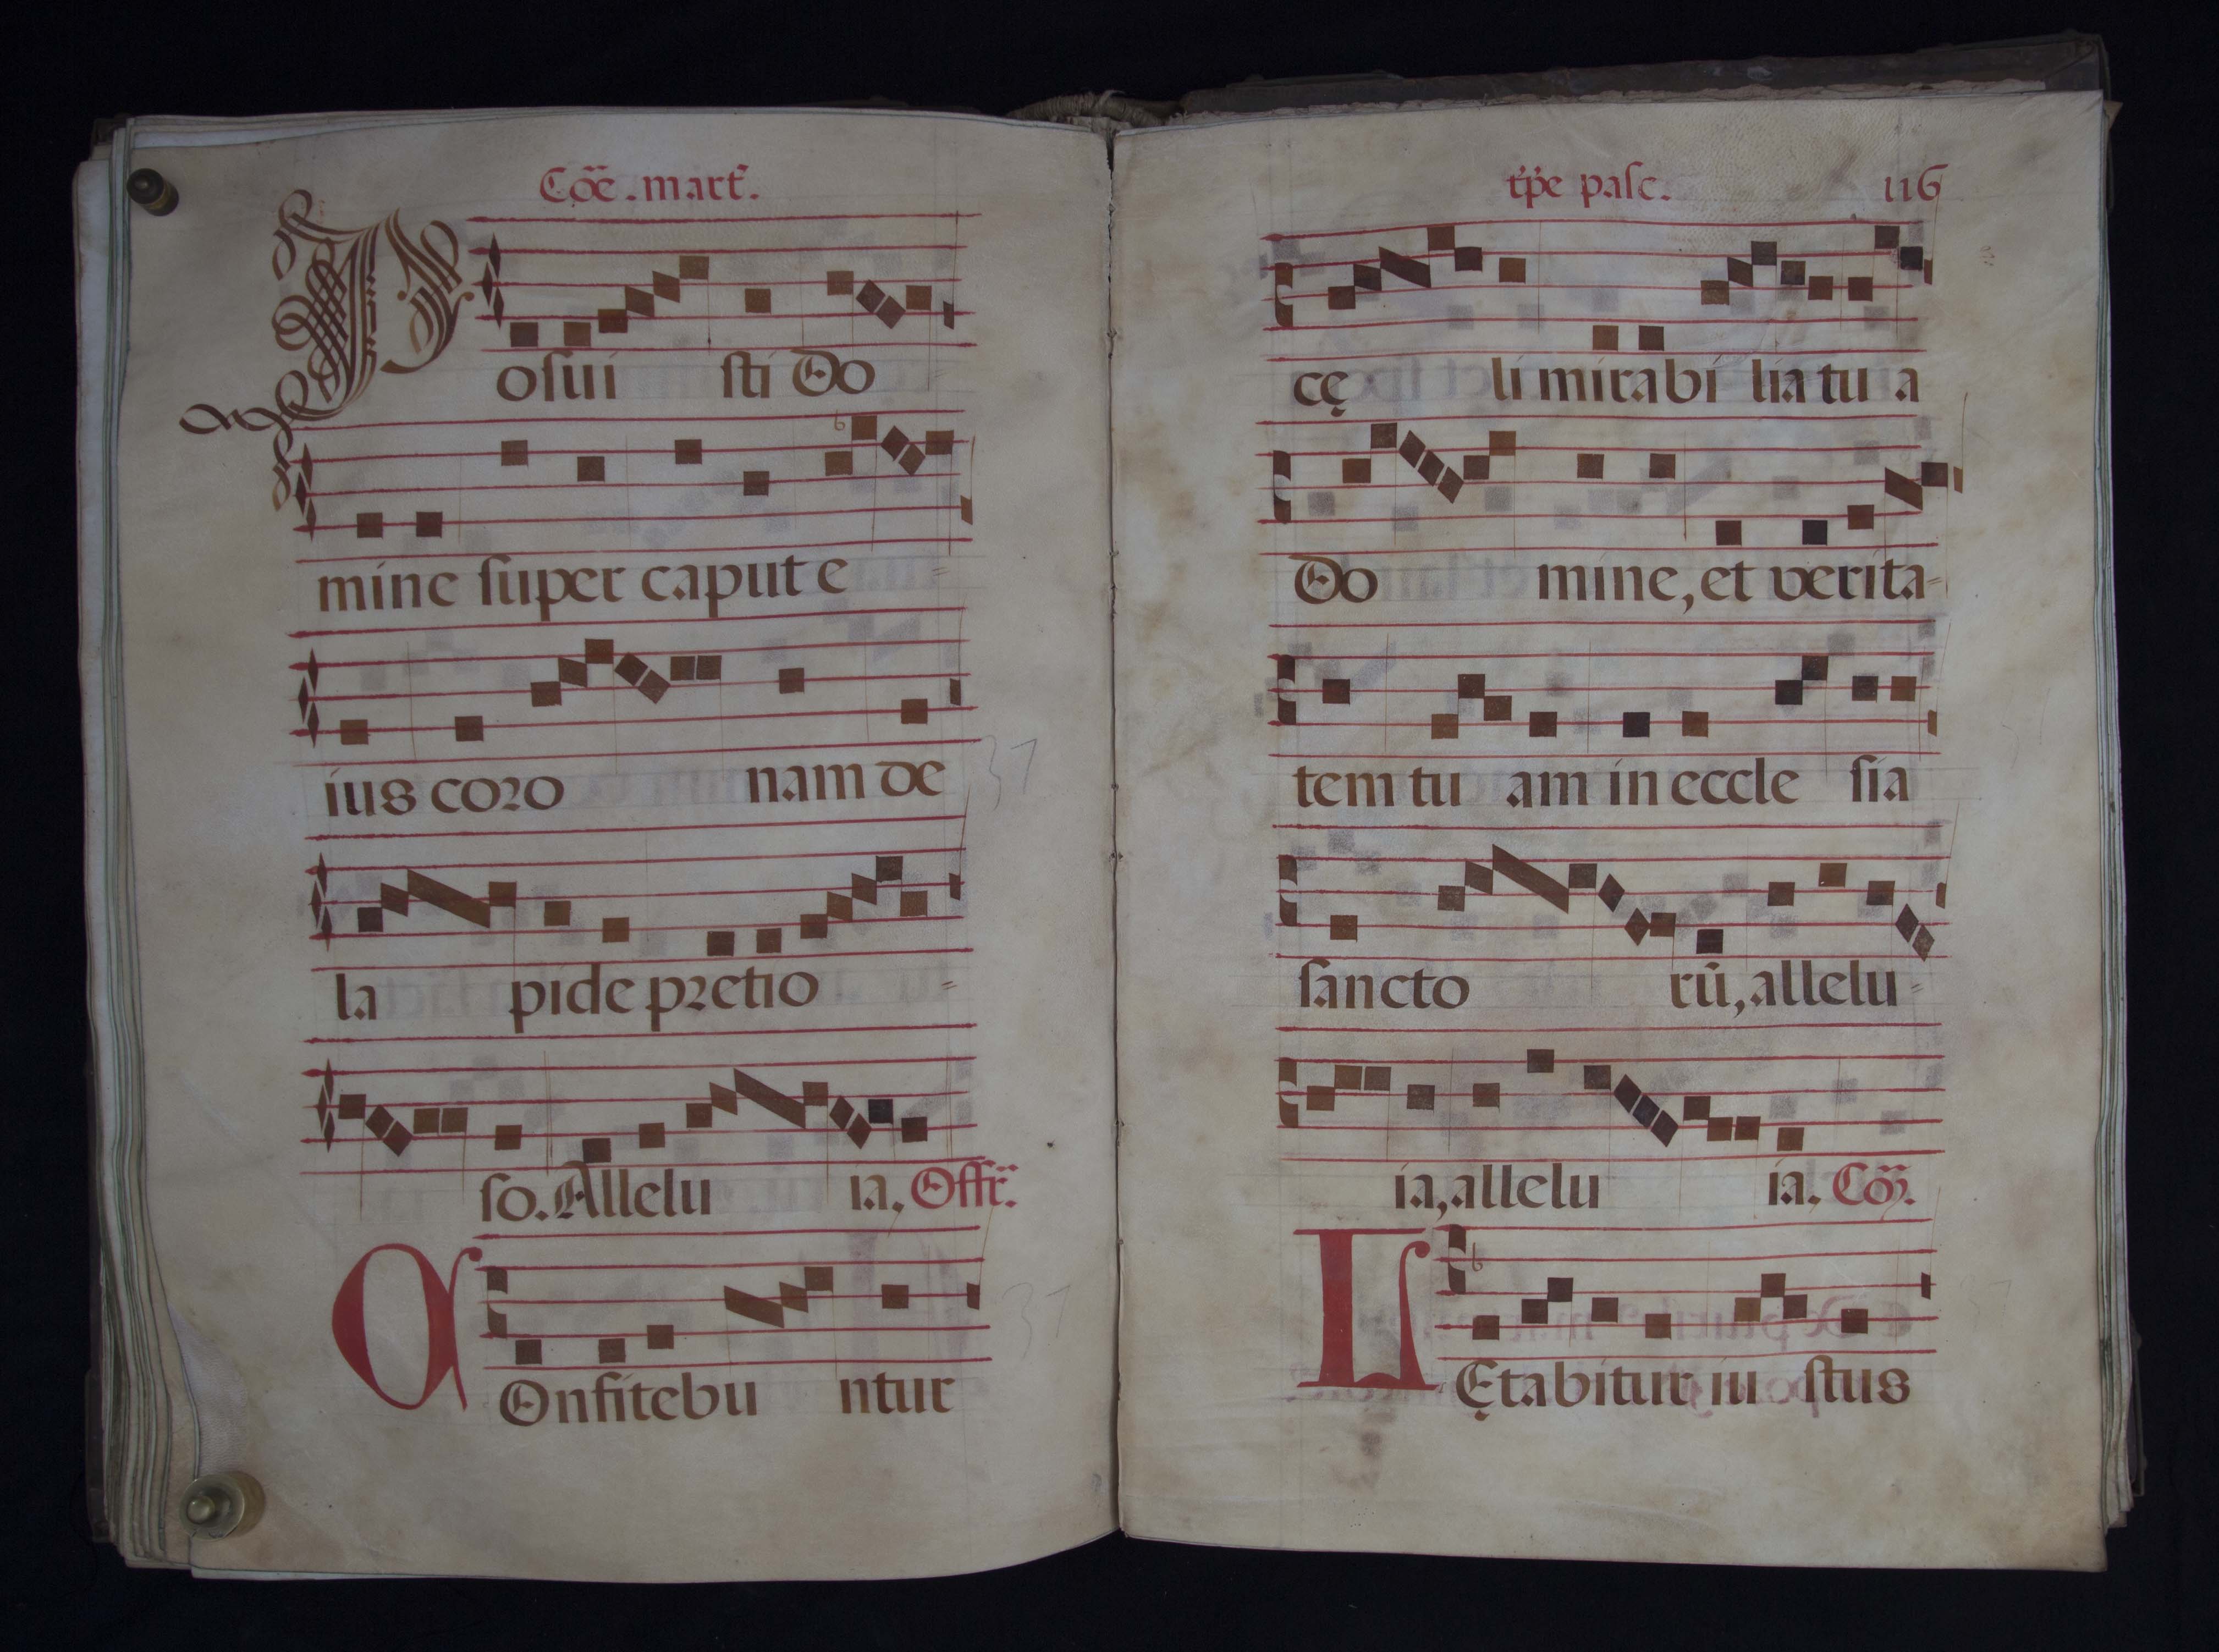 Cōe. mart.
Posui sti Do
mine super capút e=
ius coro nam de
la pide pretio =
so. Allelu ia. Offr̄.
COnfitebu ntur
tp̄e pasc. 116
cę li mirabi lia tu a
Do mine, et verita=
tem tu am in eccle sia
sancto rū, allelu=
ia, allelu ia. Cō.
LĘtabitur iu stus
37
37